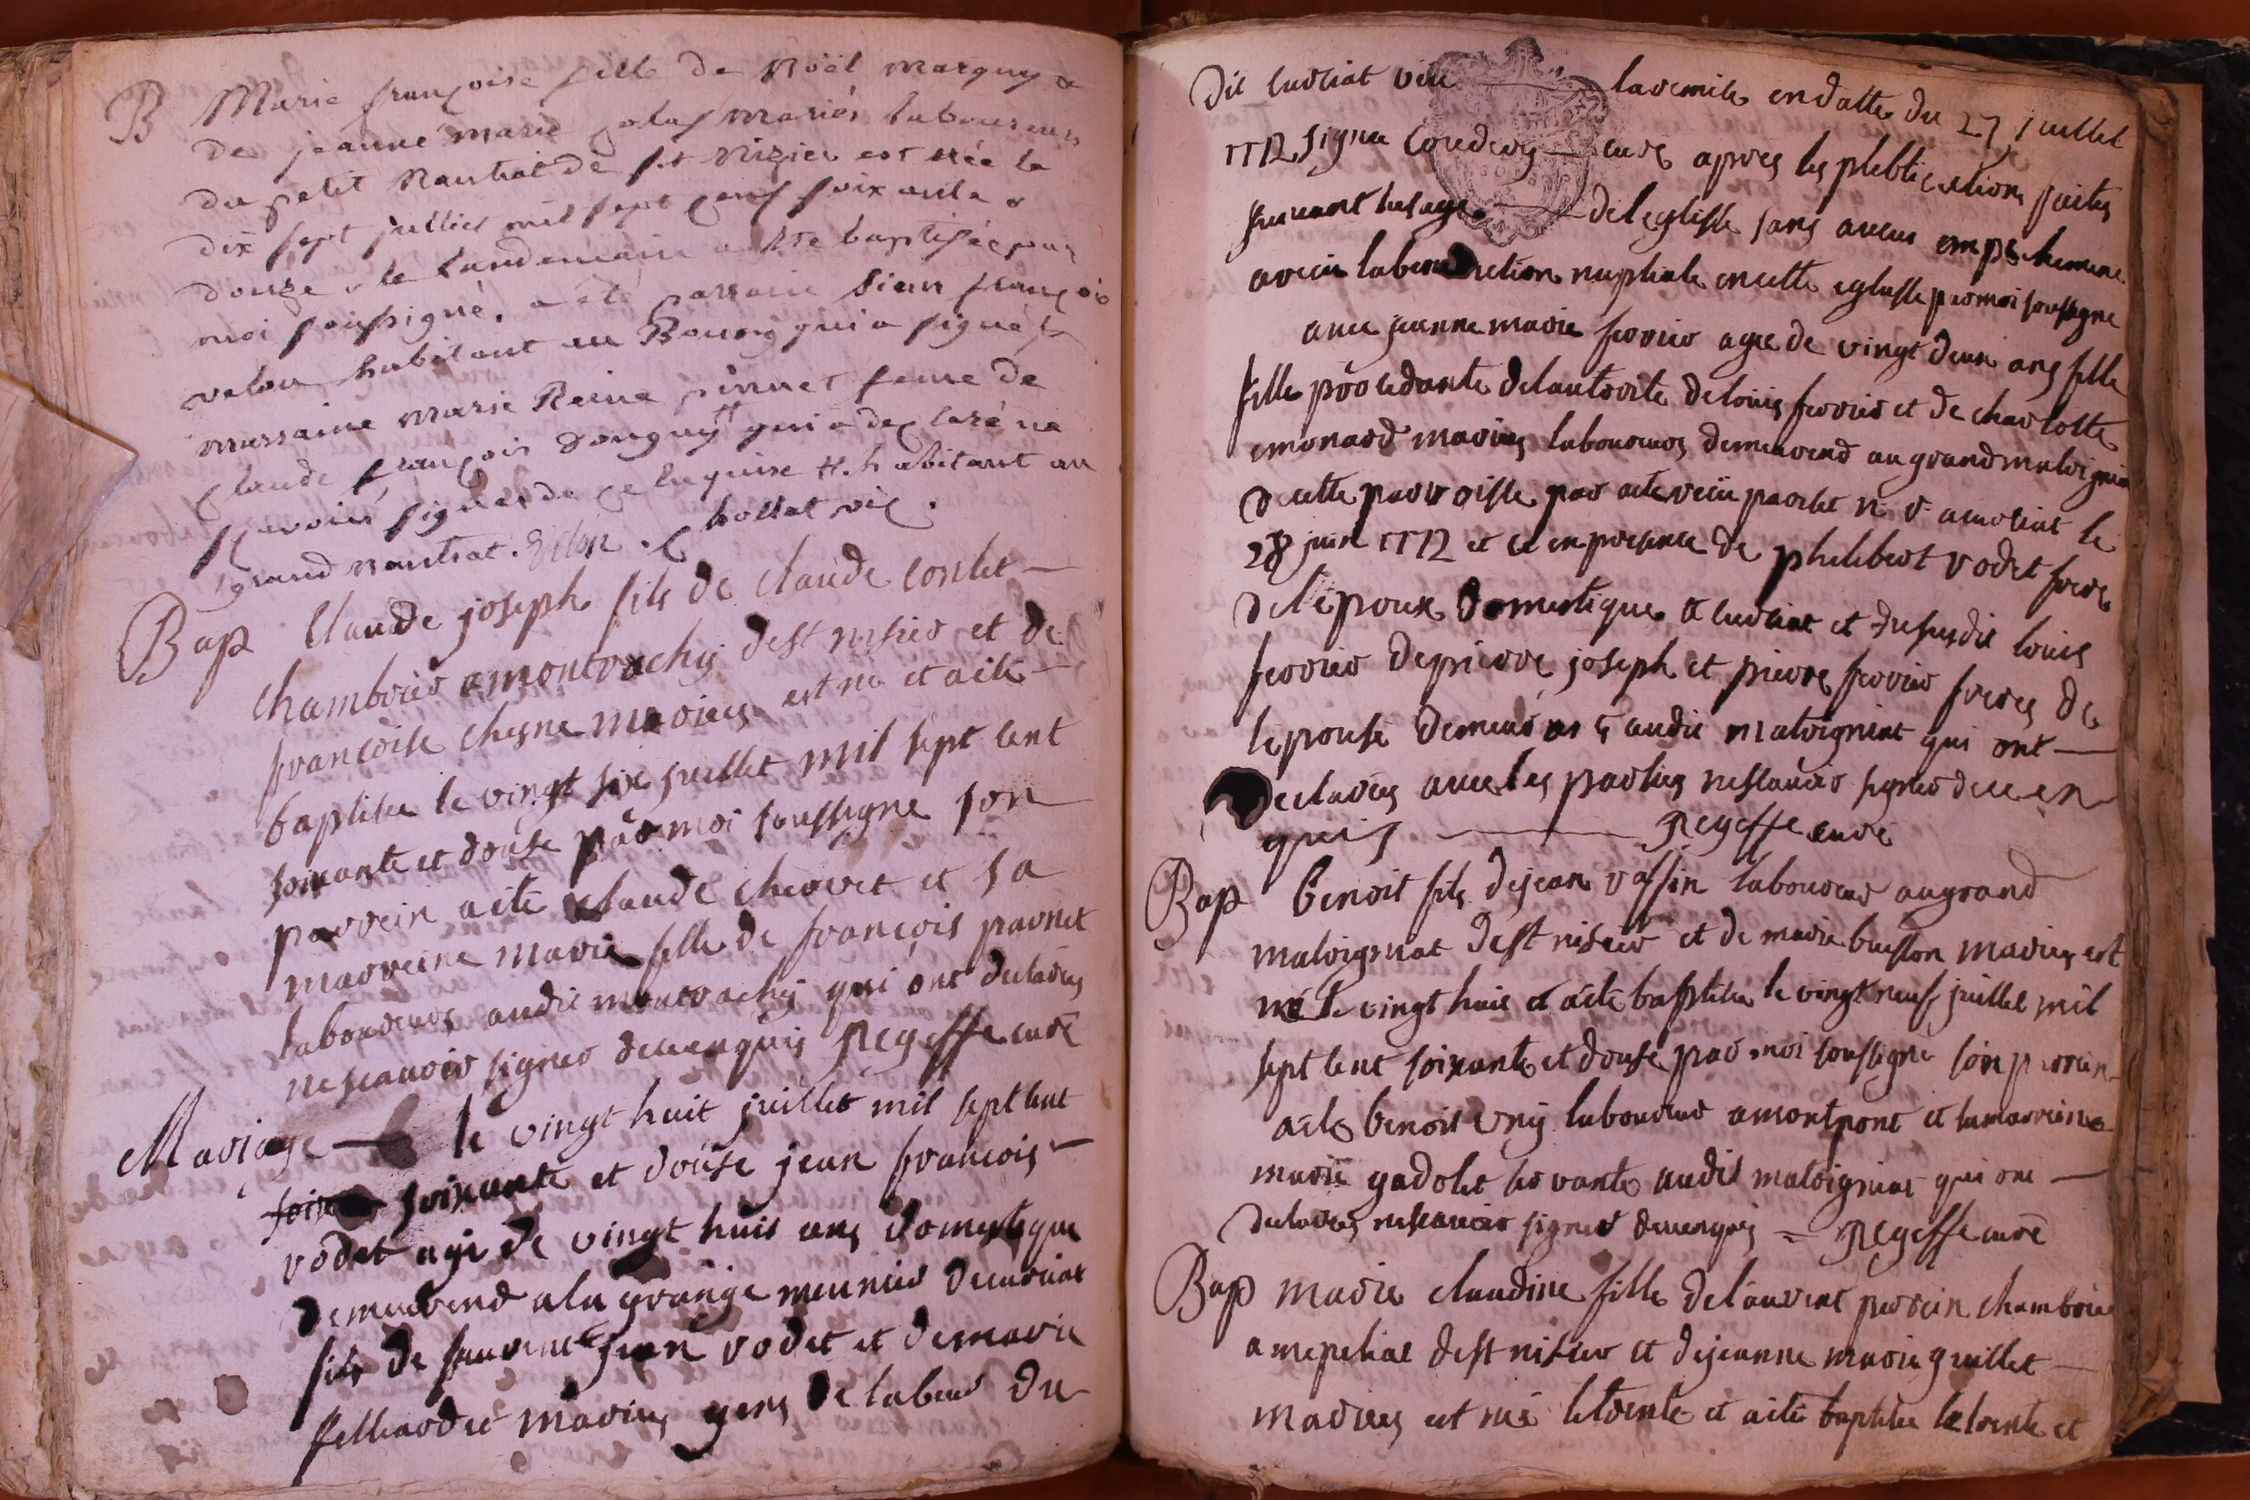 B Marie françoise fille de Noël Marguy &
de jeanne marie golas mariés laboureurs
du petit Nantrat de st Nizier est née le
dix sept juillet mil sept cens soixante &
douze & le landemain a été baptisée par
moi soussigné. a été parrain sieur françois
velou habitant au Bourg qui a signé &
marraine Marie Reine pinnet feme de
Claude françois Donguy qui a declaré ne
sçavoir signer de ce enquise habitant au
grand nantrat. chollat vic.
Bap Claude joseph fils de claude contet
chambrier a montrachy de st nisier et de
francoise chesne mariés est né et a eté
baptisée le vingt six juillet mil sept cent
soixante et douse par moi soussigne son
parrein a eté claude chervet et sa
marreine marie fille de francois pavnet
laboureur audit montrachy qui ont declarés
ne scavoir signer de ce enquis Regeffe curé
Mariage le vingt huit juillet mil sept cent
soixante et douse jean francois
vodet agé de vingt huit ans domestique
demeurend a la grange meunier de curciat
fils de jean vodet et de marie
felliardet mariés gens de labeur du
dit curciat vüe la remise en datte du 27 juillet
1772 signée curé apres les pleblications faites
suivant lusage de leglisse sans aucun empechement
a recüe la benediction nuptiale en cette eglisse par moi soussigne
avec jeanne marie ferrier agée de vingt deux ans fille
fille procedante de lautorite de loüis ferrier et de charlotte
emonard mariés laboureurs demeurend au grand malvignat
de cette parroisse par acte recüe par
28 juin 1772 et ce en presence de philibert vodet frere
de lepoux domestique a curciat et du susdit louis
ferrier de pierre joseph et pierre ferrier freres de
lepouse demeurans audit malvignat qui ont
declarés avec les parties ne scavoir signer de ce en
quis Regeffe curé
Bap Benoit fils de jean voisin laboureur au grand
malvignat de st nisier et de marie buisson mariés est
né le vingt huit et a eté baptisée le vingt neuf juillet mil
sept cent soixante et douse par moi soussigne son parrein
a eté benoit vny laboureur a montpont et sa marreine
marie gadolet servante audit malvignat qui ont
declarés ne scavoir signer de ce enquis = Regeffe curé
Bap marie claudine fille de laurent perrein chambrier
a mepeliat de st nisier et de jeanne marie guillet
mariés est née le trente et a eté baptisée le trente et